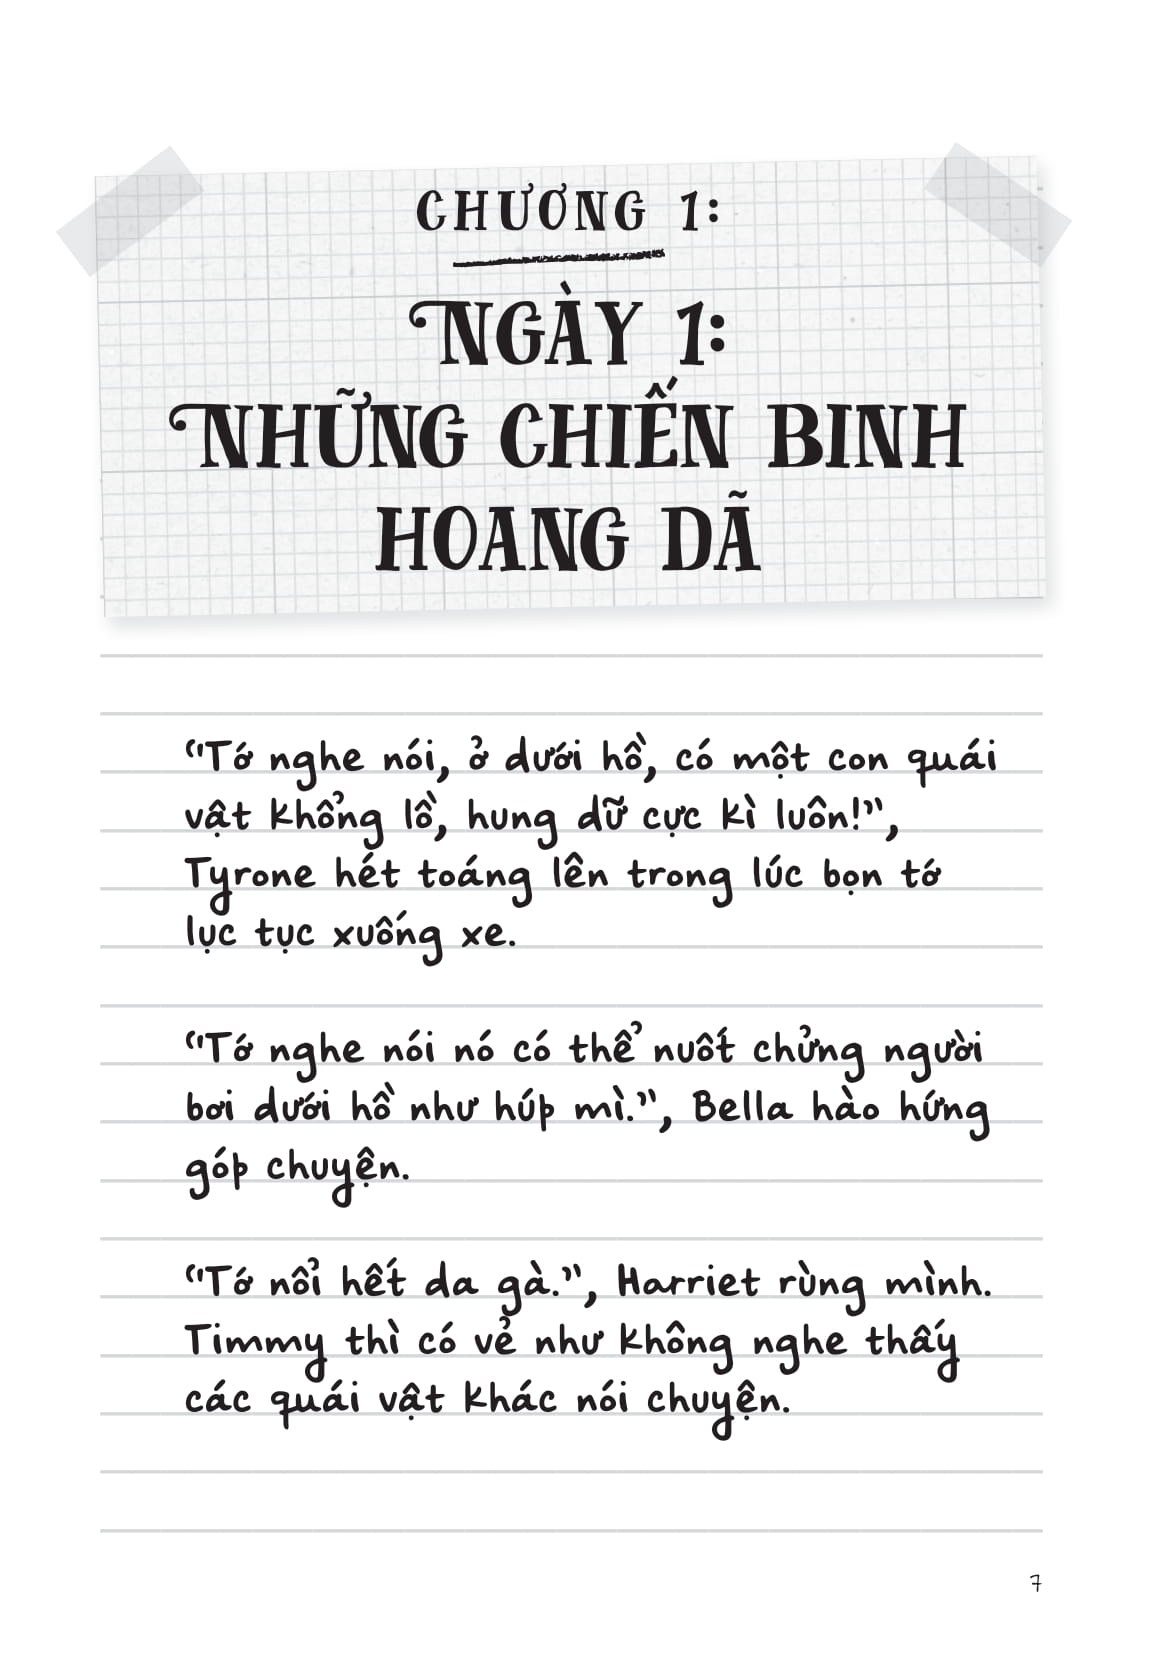 CHƯƠNG 1:
NGÀY 1:
NHỮNG CHIẾN BINH
HOANG DÃ
“Tớ nghe nói, ở dưới hồ, có một con quái
vật khổng lồ, hung dữ cực kì luôn!”,
Tyrone hét toáng lên trong lúc bọn tớ
lục tục xuống xe.
“Tớ nghe nói nó có thể nuốt chửng người
bơi dưới hồ như húp mì.”, Bella hào hứng
góp chuyện.
“Tớ nổi hết da gà.”, Harriet rùng mình.
Timmy thì có vẻ như không nghe thấy
các quái vật khác nói chuyện.
7